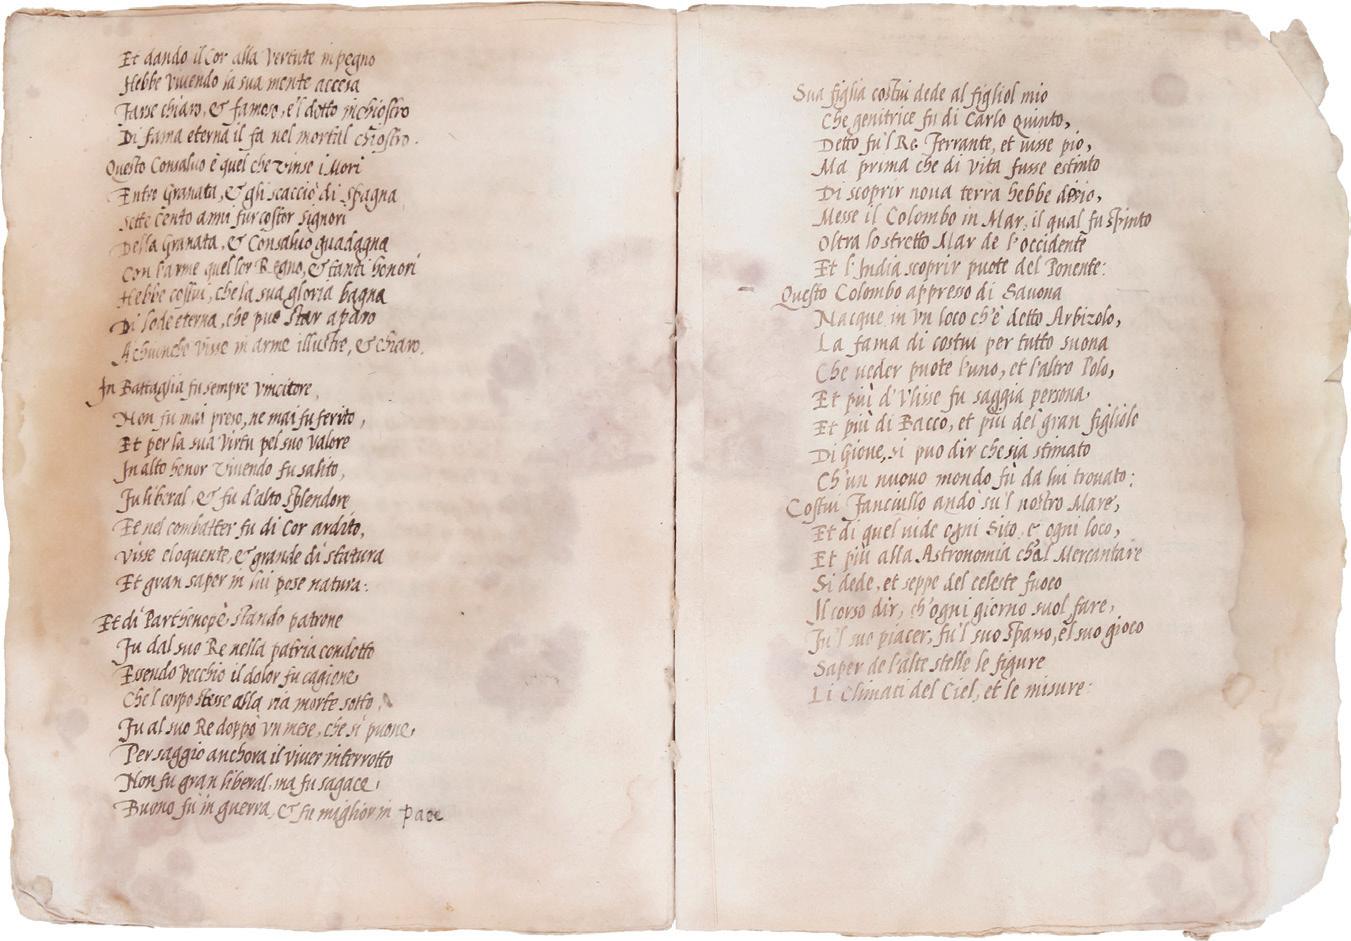 Et dando il Cor alla Vertute in pegno
Hebbe vivendo la sua mente accesa
Farse chiaro, & famoso, e'l dotto inchiostro
Di fama eterna il fa nel mortal chiostro.
Questo Consalvo è quel che vinse i Mori
Entro Granata, & gli scacciò di Spagna
Sette Cento anni fur costor signori
Della Granata, & Consalvo guadagna
Con l'arme quel lor Regno, & tanti honori
Hebbe costui, che la sua gloria bagna
Di lode eterna, che puo star aparo
A chiunche visse in arme illustre, & chiaro.
In Battaglia fu sempre vincitore,
Non fu mai preso, ne mai fu ferito,
Et per la sua Virtu pel suo Valore
In alto honor vivendo fu salito,
Fu liberal, & fu d'alto splendore
Et nel combatter fu di Cor ardito,
Visse eloquente, & grande di statura
Et gran saper in lui pose natura:
Et di Parthenopè stando patrone
Fu dal suo Re nella patria condotto
Essendo vecchio il dolor fu cagione
Che'l corpo stesse alla ria morte sotto,
Fu al suo Re doppò un mese, che si puone,
Per saggio anchora il viver interrotto
Non fu gran liberal, ma fu sagace,
Buono fu in guerra, & fu miglior in pace
Sua figlia costui dede al figliol mio
Che genitrice fu di Carlo Quinto,
Detto fu'l Re Ferrante, et visse pio,
Ma prima che di vita fusse estinto
Di scoprir nova terra hebbe desio,
Messe il Colombo in Mar, il qual fu spinto
Oltra lo stretto Mar de l'occidente
Et l'India scoprir puote del Ponente:
Questo Colombo appresso di Savona
Nacque in un loco ch'è detto Arbizolo,
La fama di costui per tutto suona
Che veder puote l'uno, et l'altro Polo,
Et più d'Ulisse fu saggia persona,
Et più di Bacco, et più del gran figliolo
Di Giove, si puo dir che sia stimato
Ch'un nuovo mondo fù da lui trovato:
Costui Fanciullo andò su'l nostro Mare,
Et di quel vide ogni Sito, e ogni loco,
Et più alla Astronomia ch'al Mercantare
Si dede, et seppe del celeste fuoco
Il corso dir, ch'ogni giorno suol fare,
Fu'l suo piacer, fu'l suo spasso, e'l suo gioco
Saper de l'alte stelle le figure
Li Climati del Ciel, et le misure: